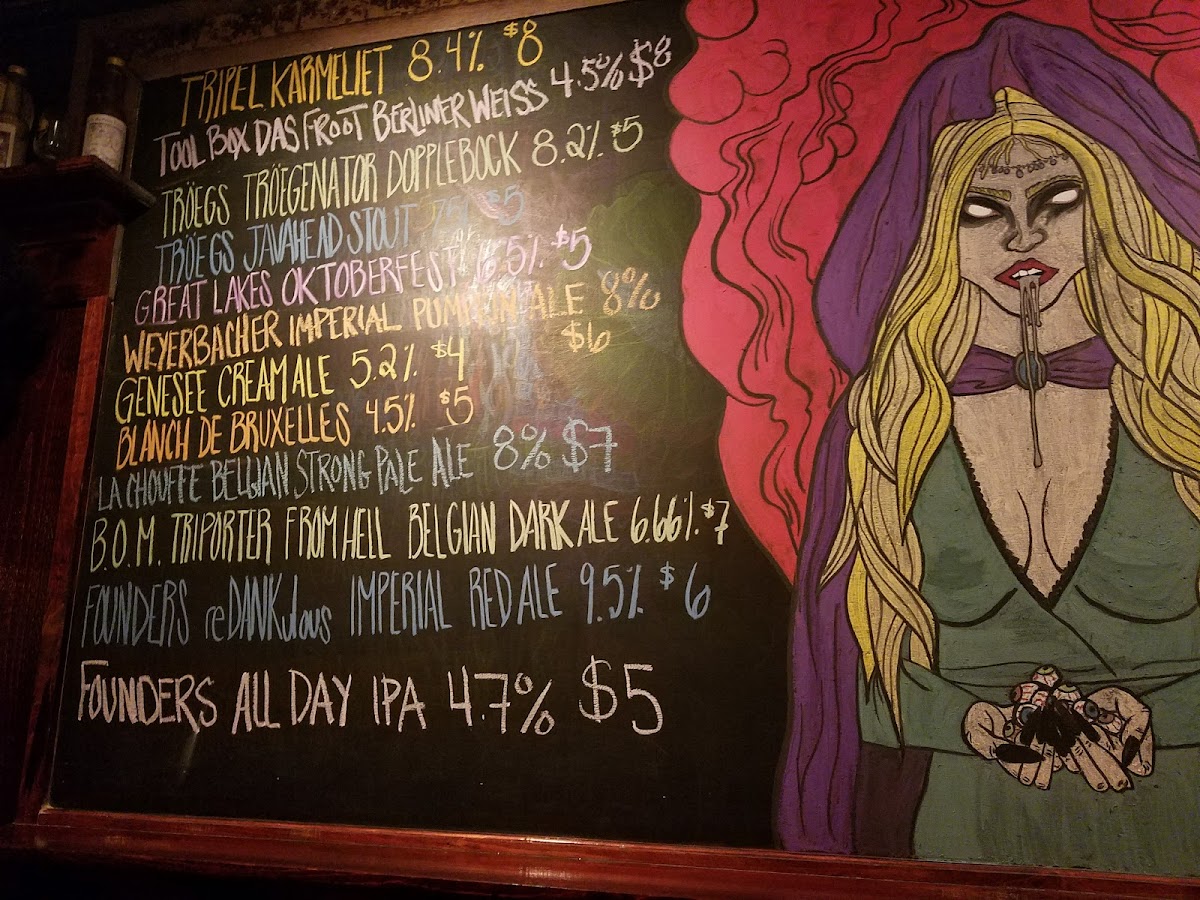 TRIPEL KARMELIET 8.4% $8
TOOL BOX DAS FROOT BERLINER WEISS 4.5% $8
TRÖEGS TRÖEGENATOR DOPPLEBOCK 8.2% $5
TRÖEGS JAVAHEAD STOUT $5
GREAT LAKES OKTOBERFEST 6.5% $5
WEYERBACHER IMPERIAL PUMPKIN ALE 8%
$6
GENESEE CREAM ALE 5.2% $4
BLANCH DE BRUXELLES 4.5% $5
LA CHOUFFE BELGIAN STRONG PALE ALE 8% $7
B.O.M. TRIPORTER FROM HELL BELGIAN DARK ALE 6.66% $7
FOUNDERS reDANKulous IMPERIAL RED ALE 9.5% $6
FOUNDERS ALL DAY IPA 4.7% $5